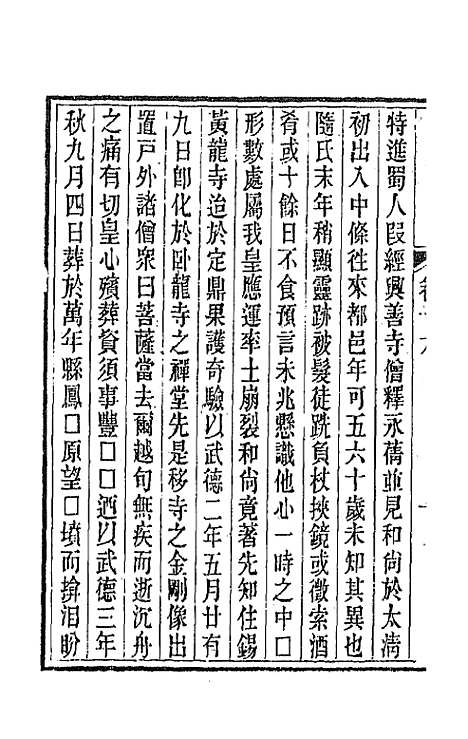 特進蜀人段經興善寺僧釋永蒨並見和尚於太淸
初出入中條徃來都邑年可五六十歲未知其異也
隨氏末年稍顯靈跡被髮徒跣負杖挾鏡或徵索酒
肴或十餘日不食預言未兆懸識他心一時之中□
形數處屬我皇應運率土崩裂和尙竟著先知住錫
黃龍寺迨於定鼎果護奇驗以武德二年五月廿有
九日卽化於卧龍寺之禪堂先是移寺之金剛像出
置戸外諸僧衆曰菩薩當去爾越旬無疾而逝沉舟
之痛有切皇心殯葬資須事豐□□迺以武德三年
秋九月四日葬於萬年縣鳳□原望□墳而揜泪盼